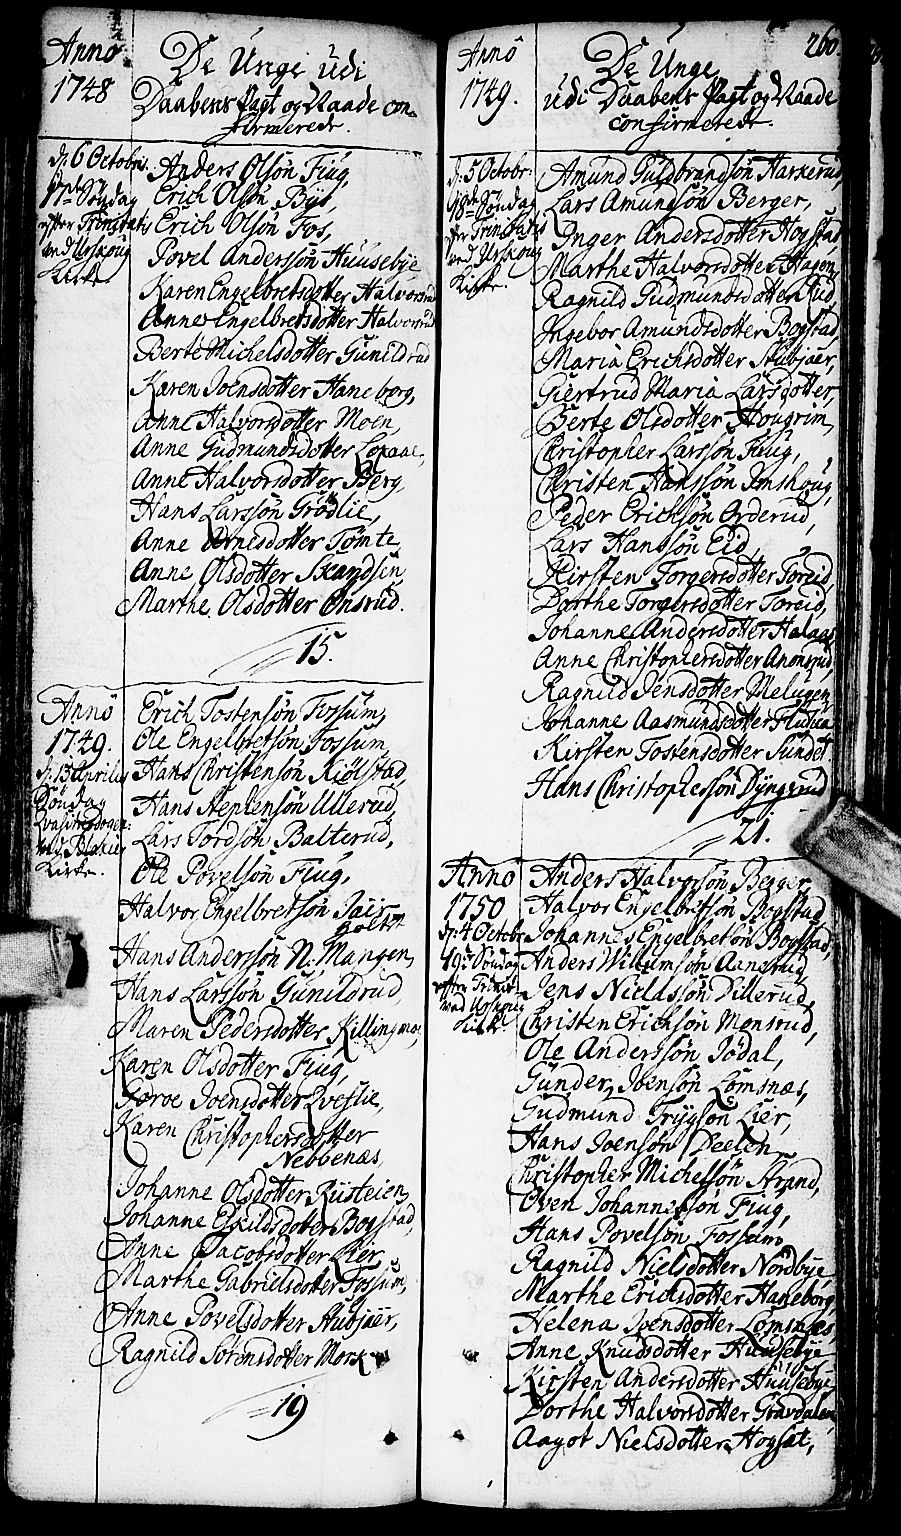 Anno
1748
De Unge udi
Daabens Pagt og Naade con-
firmerede.
d: 6 Octobr:
17de Søndag
efter Trinitatis
ved Urskoug
Kirke.
Anders Olsøn Fiug,
Erich Olsøn Bÿe,
Erich Olsøn Fos,
Povel Andersøn Huusebÿe
Karen Engelbretsdotter Halvorsrud
Anne Engelbretsdotter Halvorsrud
Berte Michelsdotter Gunildrud
Karen Joensdotter Haneborg,
Anne Halvorsdotter Moen,
Anne Gudmundsdotter
Anne Halvorsdotter Berg,
Hans Larssøn Frødlie,
Anne Arnesdotter Tomte
Anne Olsdotter Skandsen,
Marthe Olsdotter Onsrud.
15.
Anno
1749.
d: 13 Aprilis
Søndag
Qvasimodogen:
ved Blakier
Kirke.
Erich Tostensøn Fossum,
Ole Engelbretsøn Fossum
Hans Christensøn Kiølstad,
Hans Stephensøn Ullerud,
Lars Tordsøn Balterud,
Ole Povelsøn Fiug,
Halvor Engelbretsøn
holtet
Hans Anderssøn N: Mangen,
Hans Larssøn Gunildrud,
Maren Pedersdotter Killingmoe,
Karen Olsdotter Fiug,
Goroe Joensdotter Qveslie,
Karen Christophersdotter
Nebbenæs,
Johanne Olsdotter Rusteien,
Johanne Eskildsdotter Bogstad,
Anne Jacobsdotter Lier,
Marthe Gabrielsdotter Fossum,
Anne Povelsdotter Stubjaer,
Ragnild Sørensdotter Mork
19
260.
Anno
1749.
De Unge
udi Daabens Pagt og Naade
confirmerede.
d: 5 Octobr:
18de Søndag
efter Trinitatis
ved Urskoug
Kirke.
Amund Guldbrandsøn Harkerud,
Lars Amundsøn Berger,
Inger Andersdotter Hogstad
Marthe Halvorsdotter Hagen,
Ragnild Gudmundsdotter Rud,
Ingebor Amundsdotter Bogstad,
Maria Erichsdotter Stubjaer,
Giertrud Maria Larsdotter,
Berte Olsdotter Hougrim,
Christopher Larssøn Fiug,
Christen Hanssøn Imshoug,
Peder Erichsøn Orderud,
Lars Hanssøn Eid,
Kirsten Torgersdotter Toreid,
Dorthe Torgersdotter Toreid,
Johanne Andersdotter Halaas,
Anne Christophersdotter Anonsrud,
Ragnild Jensdotter Melugen,
Johanne Aasmundsdotter
Kirsten Tostensdotter Sundet.
Hans Christophersøn Dÿngerud
21.
Anno
1750
d: 4 Octobr:
19de Søndag
efter Trinit:
ved Urskoug
Kirke
Anders Halvorsøn Berger,
Halvor Engelbretsøn Bogstad,
Johannes Engelbretsøn Bogstad,
Anders Willumsøn Aanerud,
Jens Nielssøn Dillerud,
Christen Erichsøn Monsrud,
Ole Anderssøn Jødal,
Gunder Joensøn Lomsnæs,
Gudmund Trÿgsøn Lier,
Hans Joensøn Deelen,
Christopher Michelsøn Strand,
Even Johannessøn Fiug,
Hans Povelsøn Fossum,
Ragnild Nielsdotter Nordbÿe,
Marthe Erichsdotter Haneborg,
Helena Joensdotter Lomsnæs
Anne Knudsdotter Huusebÿe
Kirsten Andersdotter Huusebÿe,
Dorthe Halvorsdotter Gravdalen,
Aagot Nielsdotter Hogset,